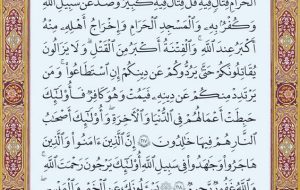 ٱلْحَرَامِ قِتَالٍ فِيهِ قُلْ قِتَالٌ فِيهِ كَبِيرٌ وَصَدٌّ عَن سَبِيلِ ٱللَّهِ
وَكُفْرٌۢ بِهِۦ وَٱلْمَسْجِدِ ٱلْحَرَامِ وَإِخْرَاجُ أَهْلِهِۦ مِنْهُ
أَكْبَرُ عِندَ ٱللَّهِ وَٱلْفِتْنَةُ أَكْبَرُ مِنَ ٱلْقَتْلِ وَلَا يَزَالُونَ
يُقَاتِلُونَكُمْ حَتَّىٰ يَرُدُّوكُمْ عَن دِينِكُمْ إِنِ ٱسْتَطَاعُوا۟ وَمَن
يَرْتَدِدْ مِنكُمْ عَن دِينِهِۦ فَيَمُتْ وَهُوَ كَافِرٌ فَأُو۟لَٰٓئِكَ
حَبِطَتْ أَعْمَالُهُمْ فِى ٱلدُّنْيَا وَٱلْـَٔاخِرَةِ وَأُو۟لَٰٓئِكَ أَصْحَابُ
ٱلنَّارِ هُمْ فِيهَا خَالِدُونَ إِنَّ ٱلَّذِينَ ءَامَنُوا۟ وَٱلَّذِينَ
هَاجَرُوا۟ وَجَاهَدُوا۟ فِى سَبِيلِ ٱللَّهِ أُو۟لَٰٓئِكَ يَرْجُونَ رَحْمَتَ ٱللَّهِ
وَٱللَّهُ غَفُورٌ رَّحِيمٌ يَسْـَٔلُونَكَ عَنِ ٱلْخَمْرِ وَٱلْمَيْسِرِ